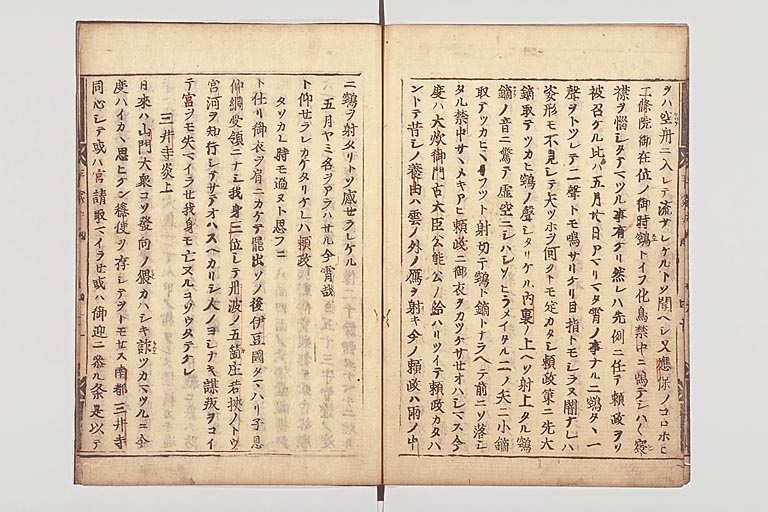 ヲハ空舟ニ入レテ流サレケルトソ聞ヘシ又應保ノコロホヒ
二條院御在位ノ御時鵼トイフ化鳥禁中ニ鳴テシハ〱宸
襟ヲ惱シタテマツル事有ケリ然レハ先例ニ任テ頼政ヲソ
被召ケル比ハ五月廿日アマリマタ宵ノ事ナルニ鵼タヽ一
聲ヲトツレテ二聲トモ鳴サリケリ目指トモシラヌ闇ナレハ
姿形モ不見シテ矢ツホヲ何クトモ定カタシ頼政策ニ先大
鏑取テツカヒ鵼ノ聲シタリケル内裏ノ上ヘソ射上タル鵼
鏑ノ音ニ驚テ虚空ニシハシソヒラメイタル二ノ矢ニ小鏑
取テツカヒヒイフツト射切テ鵼ト鏑トナラヘテ前ニソ落シ
タル禁中サヽメキアヒ頼政ニ御衣ヲカツケサセオハシマス今
度ハ大炊御門右大臣公能公ノ給ハリツイテ頼政カタハ
ントテ昔シノ養由ハ雲ノ外ノ雁ヲ射キ今ノ頼政ハ雨ノ中
ニ鵼ヲ射タリトソ感セラレケル
五月ヤミ名ヲアラハセル今宵哉
ト仰セラレカケタリケレハ頼政
タソカレ時モ過ヌト思フニ
ト仕リ御衣ヲ肩ニカケテ罷出ソノ後伊豆國タマハリ子息
仲綱受領ニナシ我身三位シテ丹波ノ五箇庄若狹ノトウ
宮河ヲ知行シテサテオハスヘカリシ人ノヨシナキ謀叛ヲコイ
テ宮ヲモ失マイラセ我身モ亡ヌルコソウタテケレ
三井寺炎上
日來ハ山門大衆コソ發向ノ猥カハシキ訴ツカマツルニ今
度ハイカヽ思ヒケン穏便ヲ存シテヲトモセス南都三井寺
同心シテ或ハ宮請取マイラセ或ハ御迎ニ參ル条是以テ